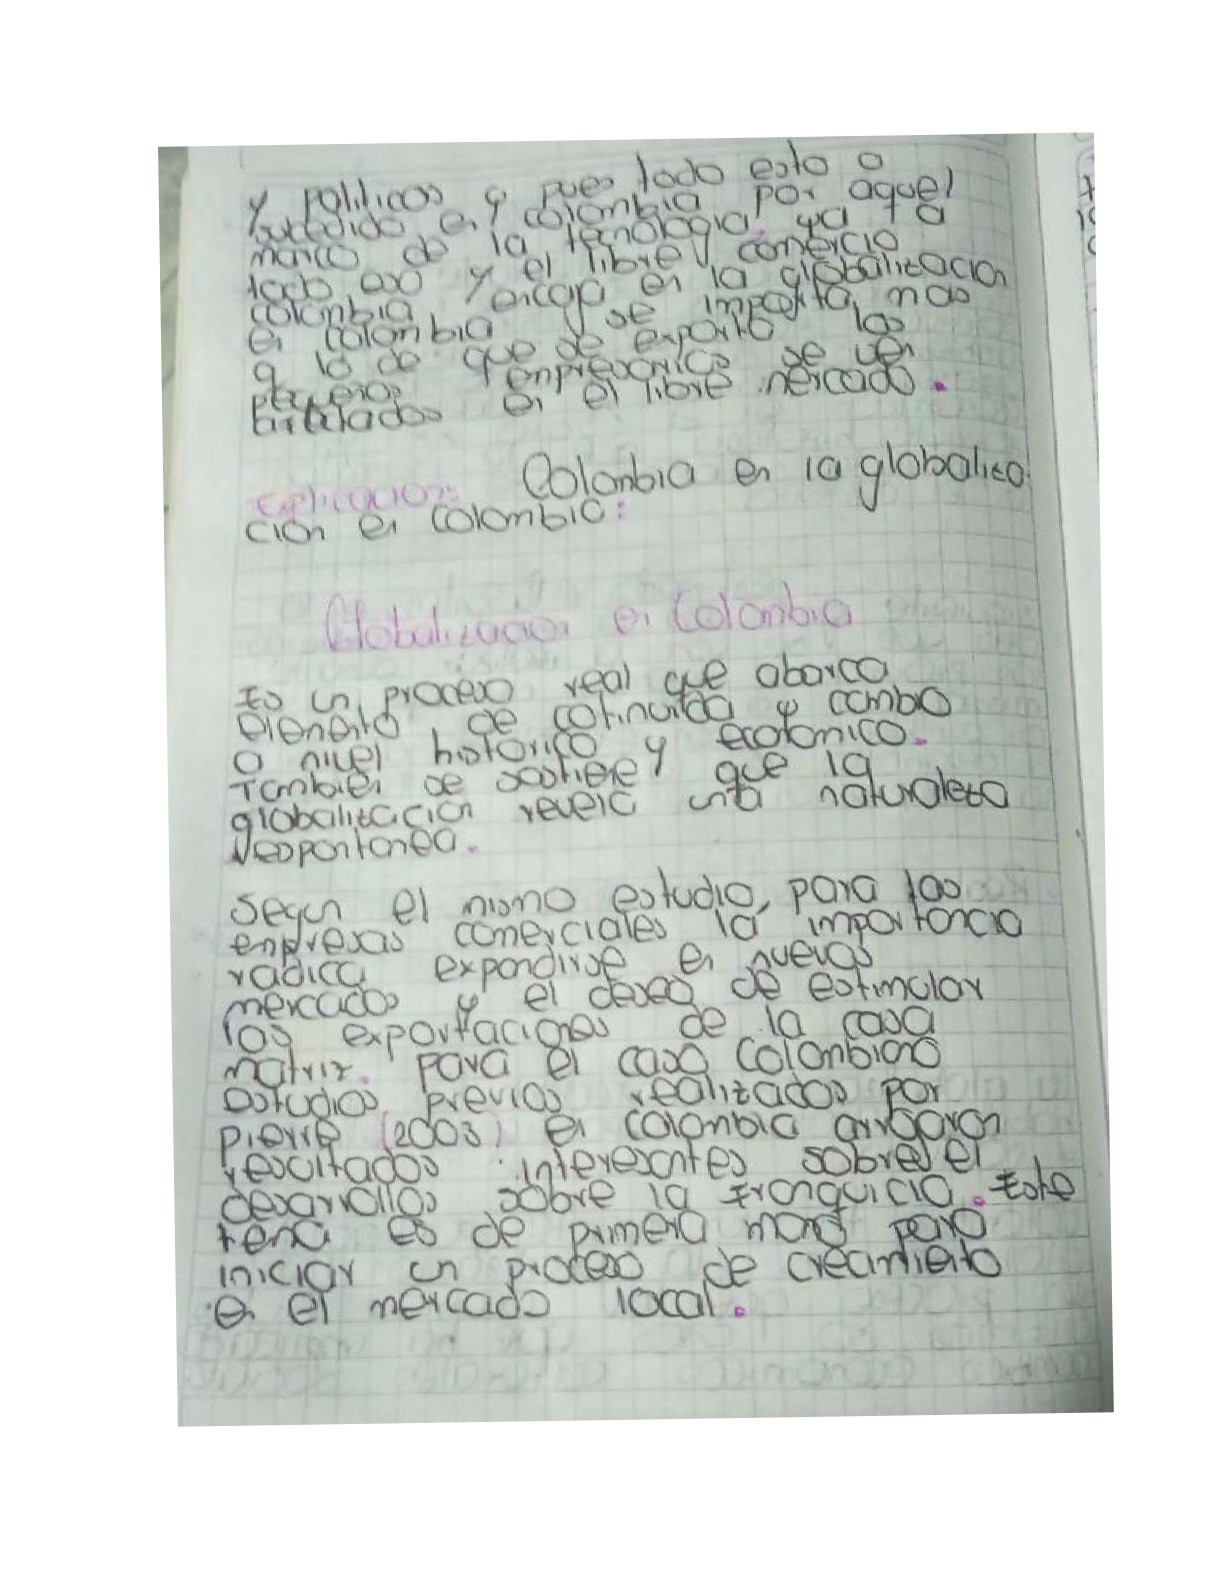 y politicos y pues todo esto a
sucedido en colombia por aquel
marco de la tecnologia ya
todo eso y el libre comercio
colombia encaja en la globalizacion
en colombia se importa mas
q lo de que se exporta las
pequeños enpresarios se ven
en el libre mercado.
Explicacion: Colonbia en la globaliza
cion en Colombia:
Globalizacion en Colonbia
Es un proceso real que abarca
elemento de cotinuida y cambio
a nivel historico y economico.
Tambien se sostiene que la
globalizacion revela una naturaleza
espontanea.
Segun el mismo estudio, para las
enpresas comerciales la importancia
radica expandirse en nuevos
mercados y el deseo de estimular
las exportaciones de la casa
matriz. para el caso Colombiano
estudios previos realizados por
Pierre (2003) en colonbia arrojaron
resultados interesantes sobre el
desarrollos sobre la franquicia. Este
tema es de primera mano para
iniciar un proceso de creamiento
en el mercado local.